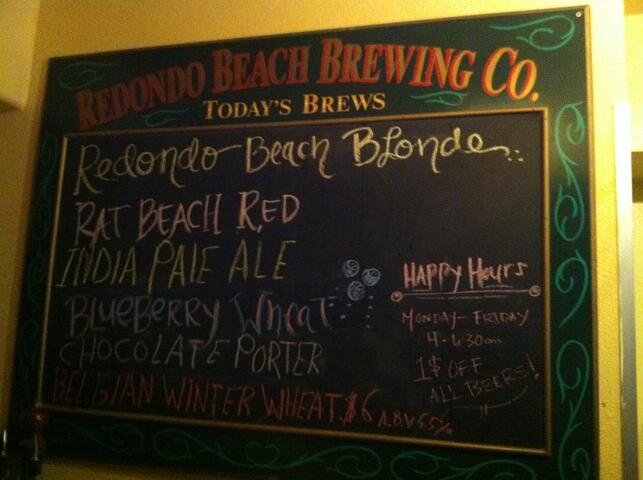 REDONDO BEACH BREWING CO.
TODAY'S BREWS
Redondo Beach Blonde
RAT BEACH RED
INDIA PALE ALE
BLueBeRRY Wheat
CHOCOLATE PORTER
BELGIAN WINTER WHEAT $6 A.B.V 6.5%
HAPPY Hours
MONDAY-FRIDAY
4-6:30
1$ OFF
ALL BEERS!